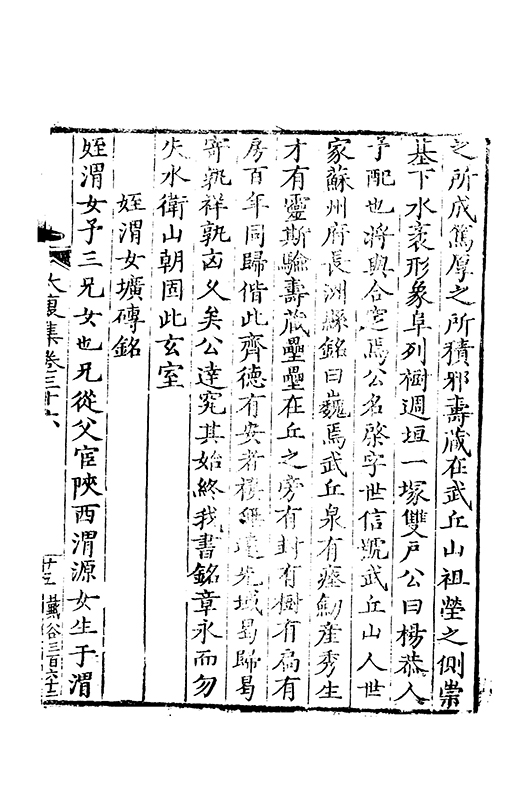 之所成篤厚之所積邪壽藏在武丘山祖塋之側崇
基下水袤形象阜列樹週垣一塚雙戶公曰楊恭人
予配也將與合窆焉公名啓字世信號武丘山人世
家蘇州府長洲縣銘曰巍焉武丘泉有瘞劒產秀生
才有靈斯驗壽藏壘壘在丘之旁有封有樹有扃有
房百年同歸偕此齊德有安者 無 先域曷歸曷
寄孰祥孰㐫乆矣公達究其始終我書銘章永而勿
失水衛山朝固此玄室
姪渭女壙磚銘
姪渭女予三兄女也兄從父宦陝西渭源女生于渭
大復集卷三十六
十五
藏谷三百六十